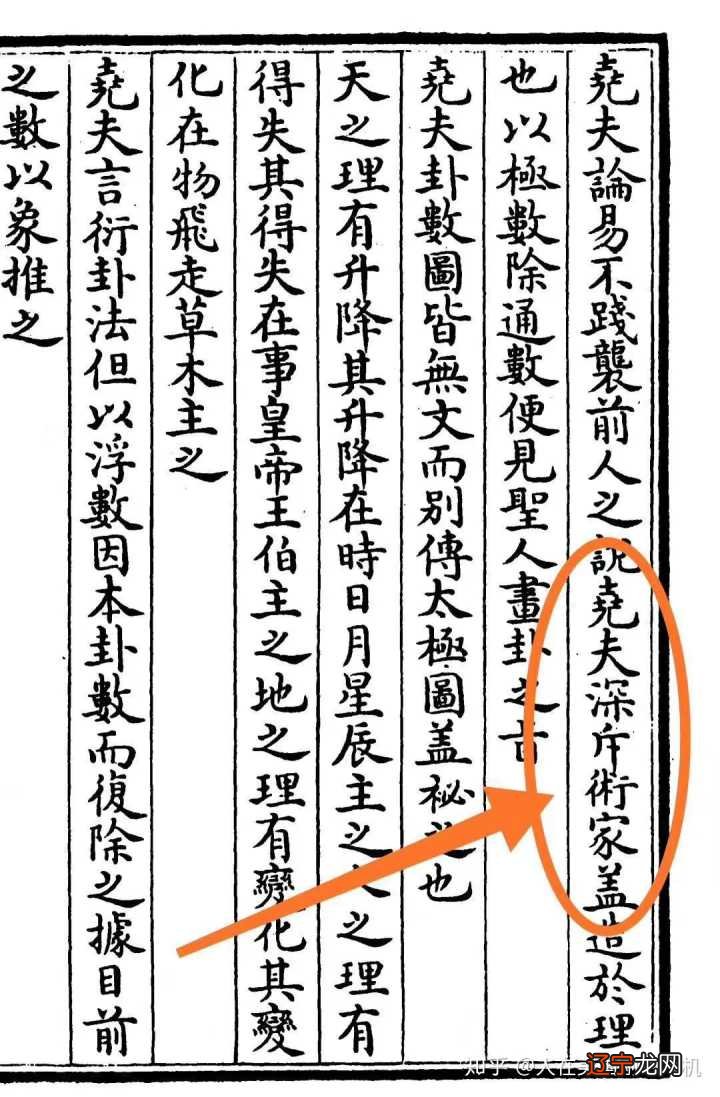 堯夫論易不踐襲前人之說堯夫深斥術家蓋造於理
也以極數除通數便見聖人畫卦之旨
堯夫卦數圖皆無文而別傳太極圖蓋秘之也
天之理有升降其升降在時日月星辰主之人之理有
得失其得失在事皇帝王伯主之地之理有變化其變
化在物飛走草木主之
堯夫言衍卦法但以浮數因本卦數而復除之據目前
之數以象推之
知乎 @人在
辽宁龙网
机